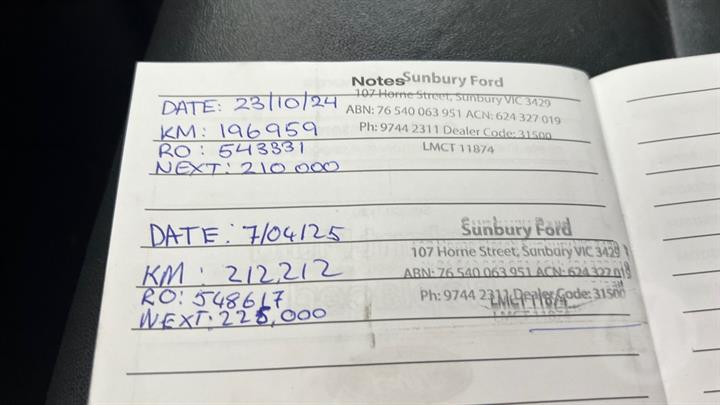 Notes
Sunbury Ford
107 Horne Street, Sunbury VIC 3429
ABN: 76 540 063 951 ACN: 624 327 019
Ph: 9744 2311 Dealer Code: 31500
LMCT 11874
DATE: 23/10/24
KM: 196959
RO: 543331
NEXT: 210 000
Sunbury Ford
107 Horne Street, Sunbury VIC 3429
ABN: 76 540 063 951 ACN: 624 327 019
Ph: 9744 2311 Dealer Code: 31500
LMCT 11874
DATE: 7/04/25
KM: 212,212
RO: 548617
NEXT: 225,000